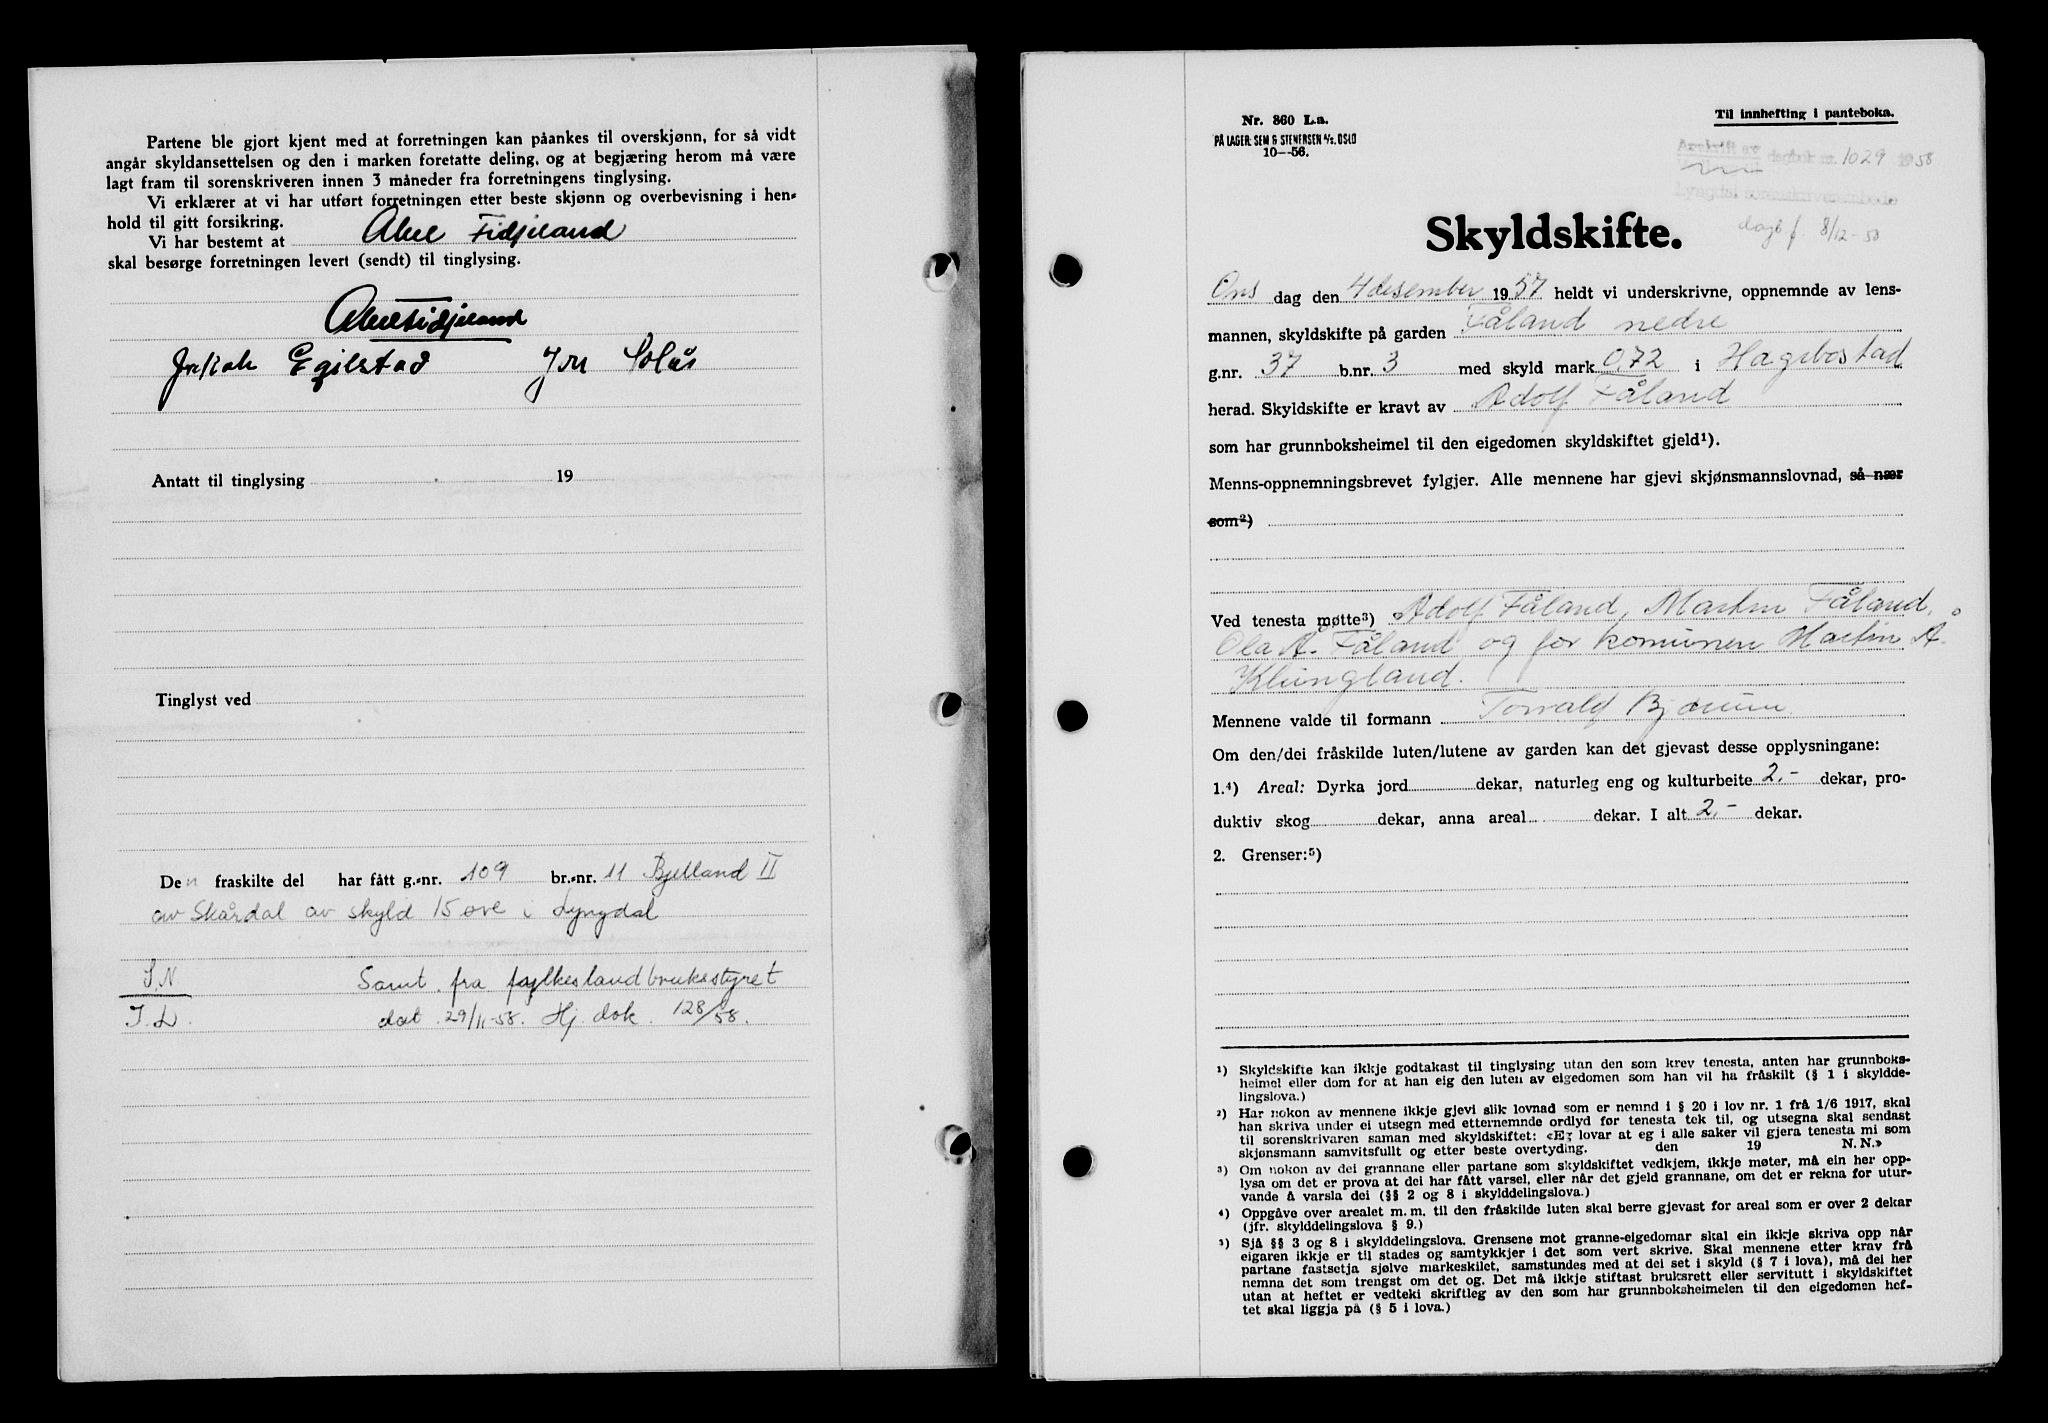 Partene ble gjort kjent med at forretningen kan påankes til overskjønn, for så vidt
angår skyldansettelsen og den i marken foretatte deling, og at begjæring herom må være
lagt fram til sorenskriveren innen 3 måneder fra forretningens tinglysing.
Vi erklærer at vi har utført forretningen etter beste skjønn og overbevisning i hen-
hold til gitt forsikring.
Vi har bestemt at Abel Fidjeland
skal besørge forretningen levert (sendt) til tinglysing.
Abel Fidjeland
Jakob Egilstad Jon Solås
Antatt til tinglysing 19
Tinglyst ved
Den fraskilte del har fått g.-nr. 109 br.-nr. 11 Bjelland II
av Skårdal av skyld 15 øre i Lyngdal
S.N Samt. fra fylkeslandbruksstyret
T.L. dat. 29/11-58. Hj. dok. 128/58.
Nr. 360 L.a.
PÅ LAGER: SEM & STENERSEN A/S, OSLO
10-56.
Til innhefting i panteboka.
Avskrift av dagbok nr. 1029 1958
Lyngdal sorenskriverembede
dagb f. 8/12-58
Skyldskifte.
Ons dag den 4 desember 1957 heldt vi underskrivne, oppnemnde av lens-
mannen, skyldskifte på garden Fåland nedre
g.nr. 37 b.nr. 3 med skyld mark 0,72 i Hægebostad
herad. Skyldskifte er kravt av Adolf Fåland
som har grunnboksheimel til den eigedomen skyldskiftet gjeld¹).
Menns-oppnemningsbrevet fylgjer. Alle mennene har gjevi skjønsmannslovnad, så nær
som²)
Ved tenesta møtte³) Adolf Fåland, Martin Fåland,
Ola Å. Fåland og for komunen Martin Å.
Klungland.
Mennene valde til formann Torvald Bjørum
Om den/dei fråskilde luten/lutene av garden kan det gjevast desse opplysningane:
1.⁴) Areal: Dyrka jord dekar, naturleg eng og kulturbeite 2.- dekar, pro-
duktiv skog dekar, anna areal dekar. I alt 2.- dekar.
2. Grenser:⁵)
¹) Skyldskifte kan ikkje godtakast til tinglysing utan den som krev tenesta, anten har grunnboks-
heimel eller dom for at han eig den luten av eigedomen som han vil ha fråskilt (§ 1 i skyldde-
lingslova.)
²) Har nokon av mennene ikkje gjevi slik lovnad som er nemnd i § 20 i lov nr. 1 frå 1/6 1917, skal
han skriva under ei utsegn med etternemnde ordlyd før tenesta tek til, og utsegna skal sendast
til sorenskrivaren saman med skyldskiftet: «Eg lovar at eg i alle saker vil gjera tenesta mi som
skjønsmann samvitsfullt og etter beste overtyding. den 19 N. N.»
³) Om nokon av dei grannane eller partane som skyldskiftet vedkjem, ikkje møter, må ein her opp-
lysa om det er prova at dei har fått varsel, eller når det gjeld grannane, om det er rekna for utur-
vande å varsla dei (§§ 2 og 8 i skylddelingslova.)
⁴) Oppgåve over arealet m. m. til den fråskilde luten skal berre gjevast for areal som er over 2 dekar
(jfr. skylddelingslova § 9.)
⁵) Sjå §§ 3 og 8 i skylddelingslova. Grensene mot granne-eigedomar skal ein ikkje skriva opp når
eigaren ikkje er til stades og samtykkjer i det som vert skrive. Skal mennene etter krav frå
partane fastsetja sjølve markeskilet, samstundes med at dei set i skyld (§ 7 i lova), må dei her
nemna det som trengst om det og. Det må ikkje stiftast bruksrett eller servitutt i skyldskiftet
utan at heftet er vedteki skriftleg av den som har grunnboksheimelen til den eigedomen hef-
tet skal liggja på (§ 5 i lova.)